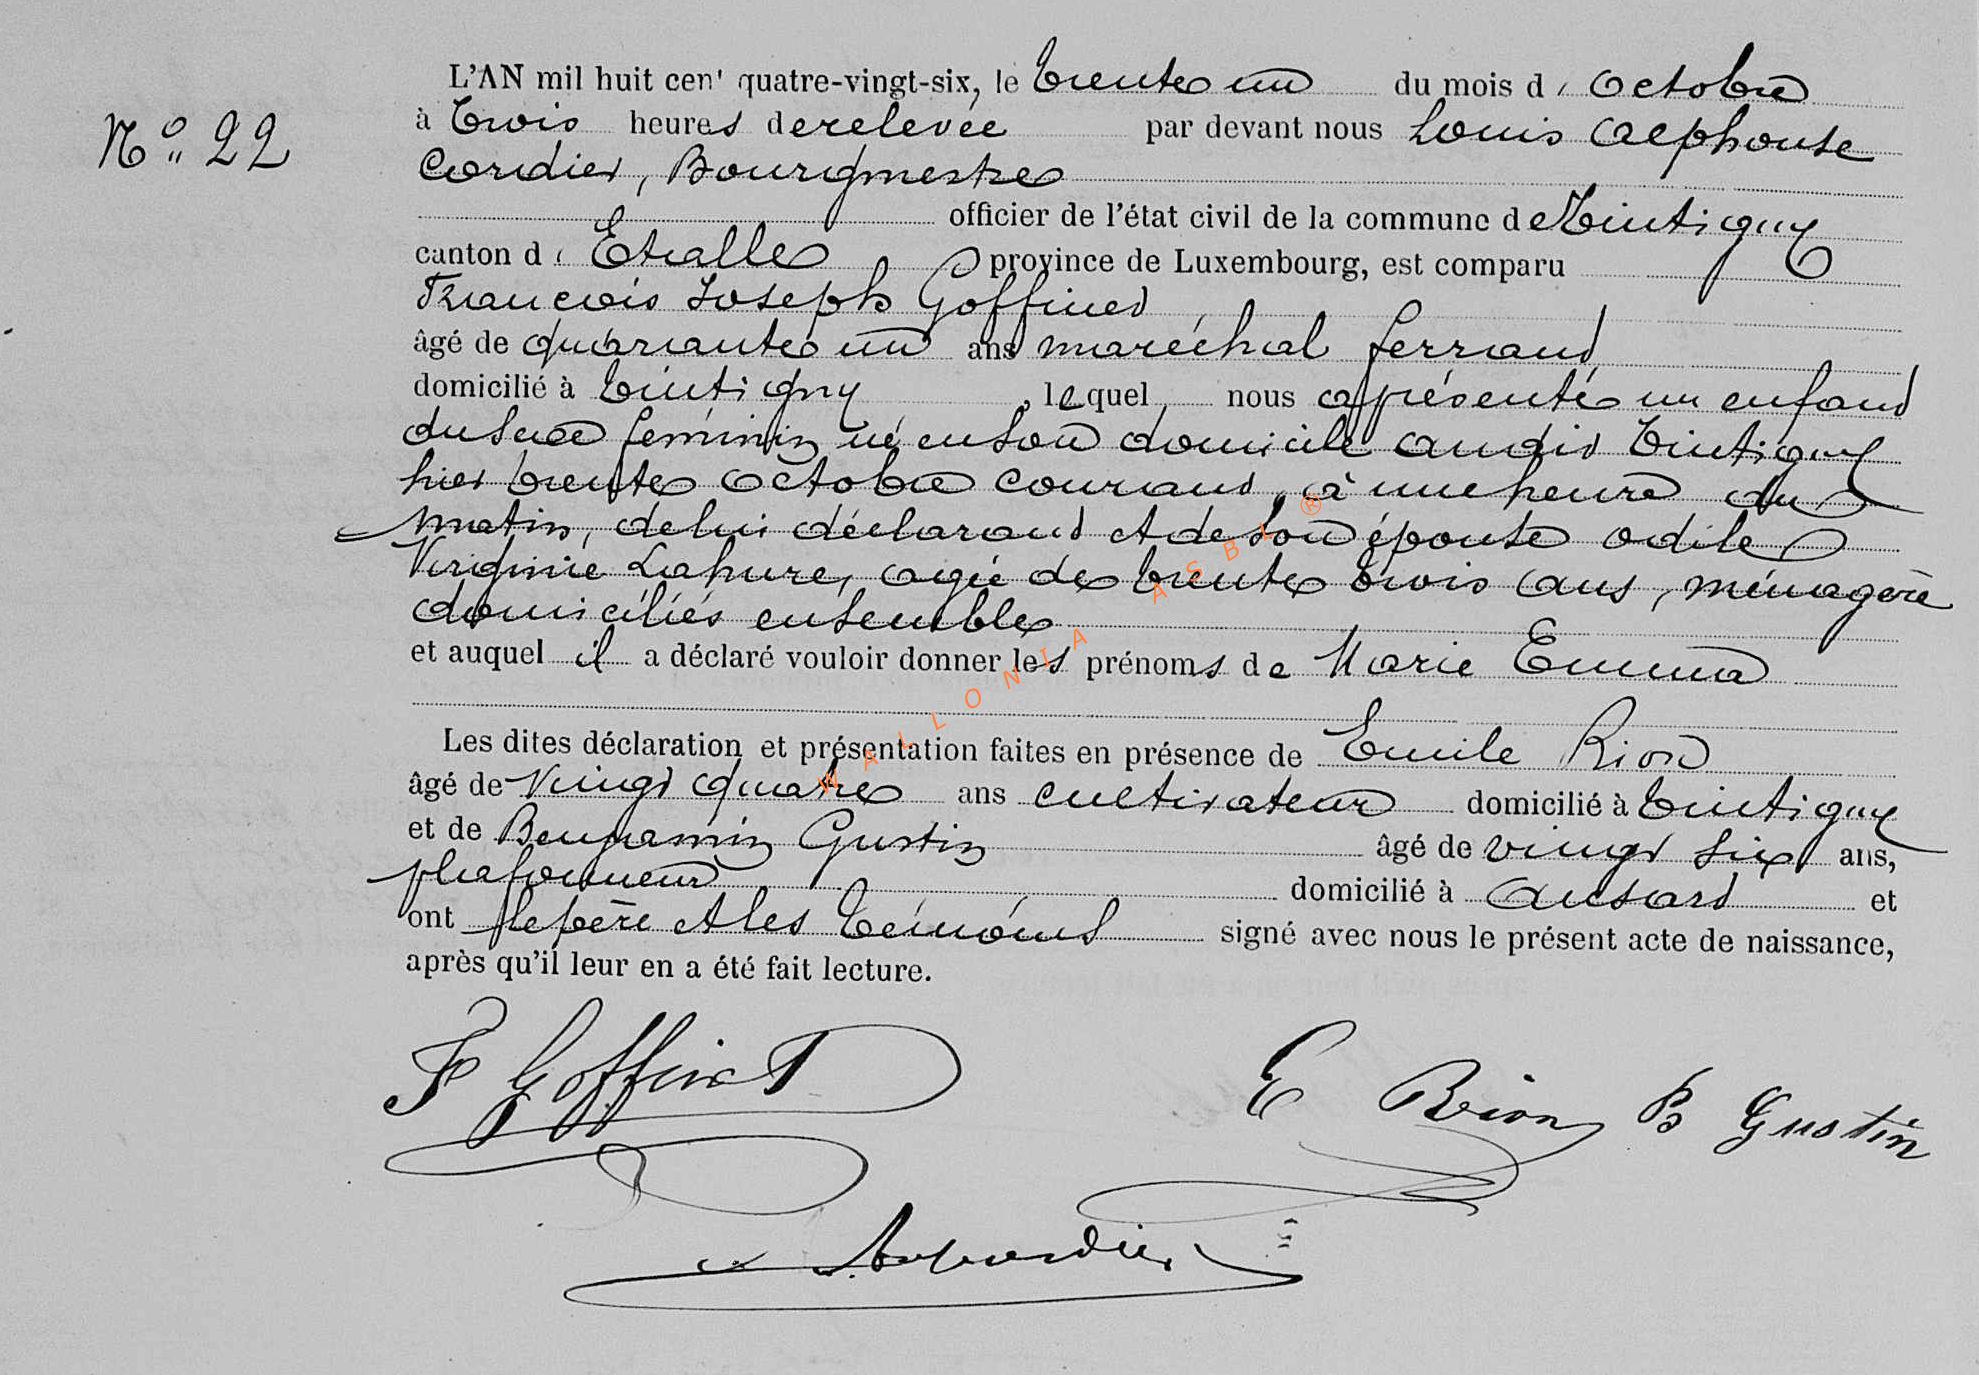 L'AN mil huit cen' quatre-vingt-six, le trente un du mois d' Octobre
N° 22
à trois heures de relevée par devant nous Louis Alphonse
Cordier, Bourgmestre
officier de l'état civil de la commune de Tintigny
canton d' Etalle province de Luxembourg, est comparu
François Joseph Goffinet
âgé de quarante un ans maréchal ferrand
domicilié à Tintigny, lequel nous a présenté un enfant
du sexe féminin né en son domicile audit Tintigny
hier trente Octobre courant, à une heure du
matin, de lui déclarant et de son épouse Odile
Virginie Lahure, agée de trente trois ans, ménagère
domiciliés ensemble
et auquel il a déclaré vouloir donner les prénoms de Marie Emma
Les dites déclaration et présentation faites en présence de Emile Rion
âgé de vingt quatre ans cultivateur domicilié à Tintigny
et de Benjamin Gustin âgé de vingt six ans,
plafonneur domicilié à Ansart et
ont le père et les témoins signé avec nous le présent acte de naissance,
après qu'il leur en a été fait lecture.
F Goffinet E Rion B Gustin
WALLONIA ASBL ®